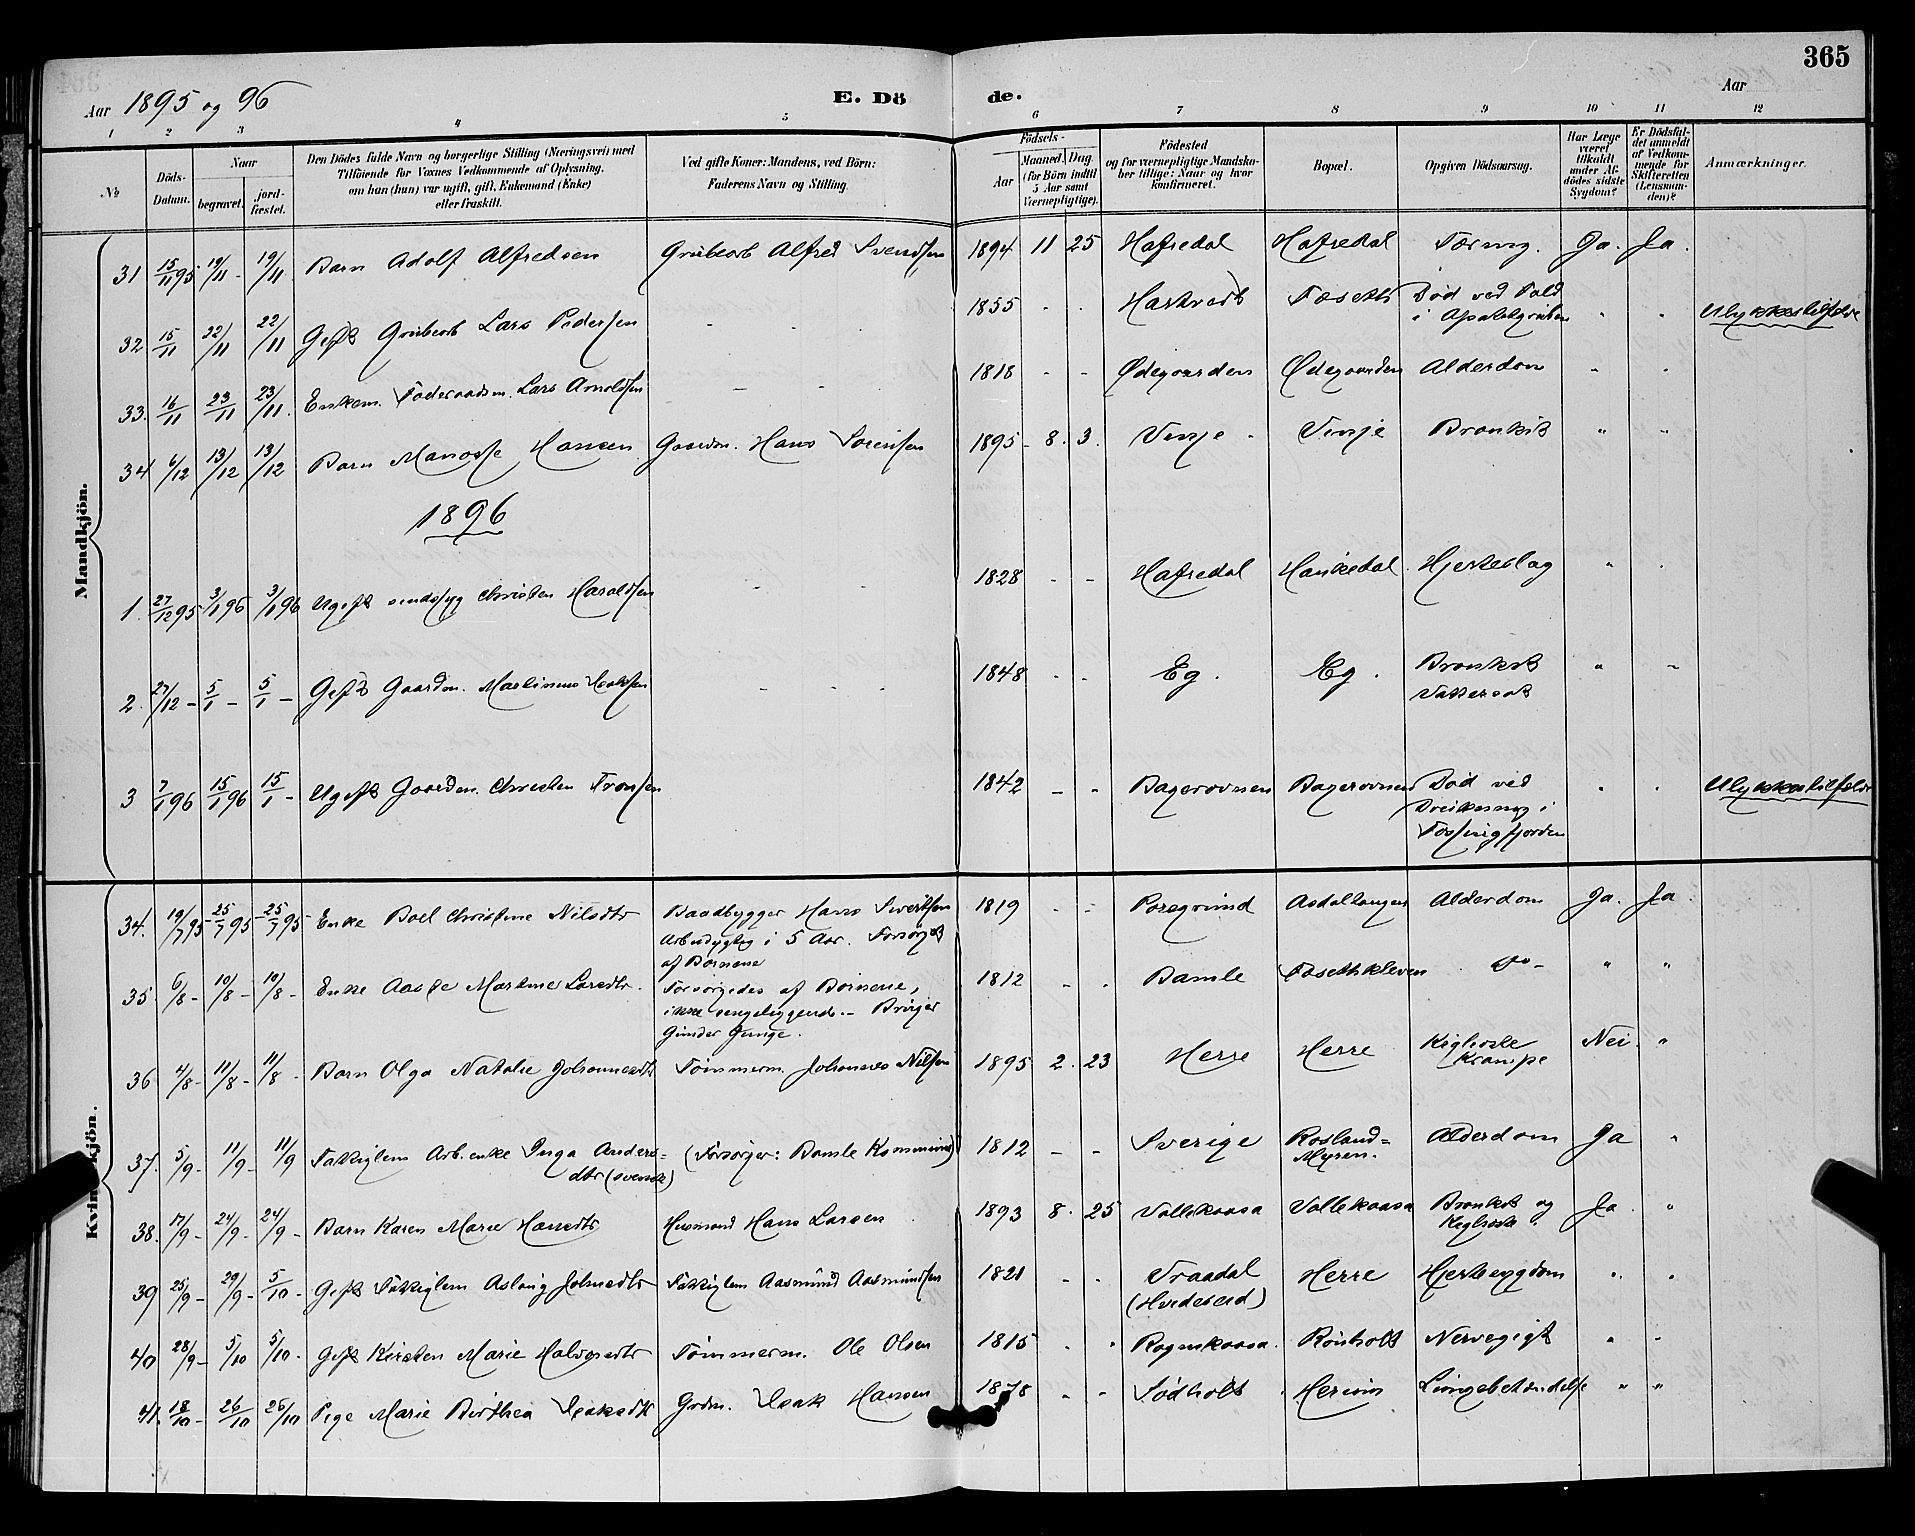 365
Aar 1895 og 96
E. Dö
de.
Aar
1 2 3 4 5 6 7 8 9 10 11 12
No
Döds-Datum.
Naar
begravet.
jord-fæstet.
Den Dödes fulde Navn og borgerlige Stilling (Næringsvei) med
Tilföiende for Voxnes Vedkommende af Oplysning,
om han (hun) var ugift, gift, Enkemand (Enke)
eller fraskilt.
Ved gifte Koner: Mandens, ved Börn:
Faderens Navn og Stilling.
Födsels-
Aar
Maaned. Dag.
(for Börn indtil
5 Aar samt
Værnepligtige).
Födested
og for værnepligtige Mandska-
ber tillige: Naar og hvor
konfirmeret.
Bopæl.
Opgiven Dödsaarsag.
Har Læge
været
tilkaldt
under Af-
dödes sidste
Sygdom?
Er Dödsfal-
det anmeldt
af Vedkom-
mende for
Skifteretten
(Lensman-
den)?
Anmærkninger.
Mandkjön.
31 15/11 95 19/11 - 19/11 Barn Adolf Alfredsen Grubearb Alfred Svendsen 1894 11 25 Hafredal Hafredal Tæring. Ja. Ja.
32 15/11 22/11 22/11 Gift Grubearb Lars Pedersen - - 1855 - - Hastvedt Fosseth Död ved Fald
i Apatitgruben " " Ulykkestilfælde
33. 16/11 23/11 23/11. Enkem. Föderaadsm. Lars Arnoldsen - - 1818 - - Ødegaarden Ødegaarden Alderdom " "
34 6/12 13/12 13/12 Barn Hansen Gaardm. Hans Sörensen 1895 - 8. 3. Vinje Vinje Bronkit " "
1896
1. 27/12 95 3/1 96 3/1 96 Ugift sindssyg Christen Haraldsen - - 1828 - - Hafredal Hankedal Hjerteslag " "
2. 27/12 - 5/1 - 5/1 - Gift Gaardm. Martinus Isaksen - - 1848 - - Eg. Eg. Bronkit
Vattersot " "
3 7/1 96 15/1 96 15/1 - Ugift Gaardm. Christen Fransen 1842 - - Bagerovnen Bagerovnen Död ved
Drukning i
Fossingfjorden " " Ulykkestilfælde
Kvindekjön.
34. 19/7 95 - 25/7 95 - 25/7 95 - Enke Boel Christine Nilsdtr Baadbygger Hans Sivertsen 1819 - - Porsgrund Asdaltangen Alderdom Ja. Ja.
Arbudygtig i 5 Aar. Forsörget
af Börnene
35 6/8 - 10/8 - 10/8 - Enke Aasse Martine Larsdtr. Forsörgedes af Börnene, 1812 - - Bamle Fosethkleven do - " "
ikke sengeliggende. - Bruger
Gunder Junge.
36 4/8 - 11/8 - 11/8 - Barn Olga Natalie Johannesdtr Tömmerm. Johannes Nilsen 1895 2. 23 Herre Herre Kighoste
Krampe Nei "
37. 5/9 - 11/9 - 11/9 Fattiglem Arb.enke Inga Anders=
dtr (svensk) (Forsörger: Bamle Kommune) 1812 - - Sverige Rosland=
Myren. Alderdom Ja "
38. 17/9 - 24/9 - 24/9 - Barn Karen Marie Hansdtr Husmand Hans Larsen 1893 8. 25 Vallekaasa Vallekaasa Bronkit og
Kighoste. Ja. "
39 25/9 - 29/9 - 5/10 - Gift Fattiglem Aslaug Johnsdtr Fattiglem Aasmund Aasmundsen 1821 - - Vraadal
(Hvideseid) Herre Hjertesygdom " "
40 28/9 - 5/10 5/10 - Gift Kirsten Marie Halvorsdtr Tömmerm. Ole Olsen 1815 - - Rognskaasa. Rönholt Nervegigt " "
41. 18/10 - 26/10 26/10 Pige Marie Birthea Isaksdtr Grdm. Isak Hansen 1878 - - Södholt Herum Lungebetændelse " "